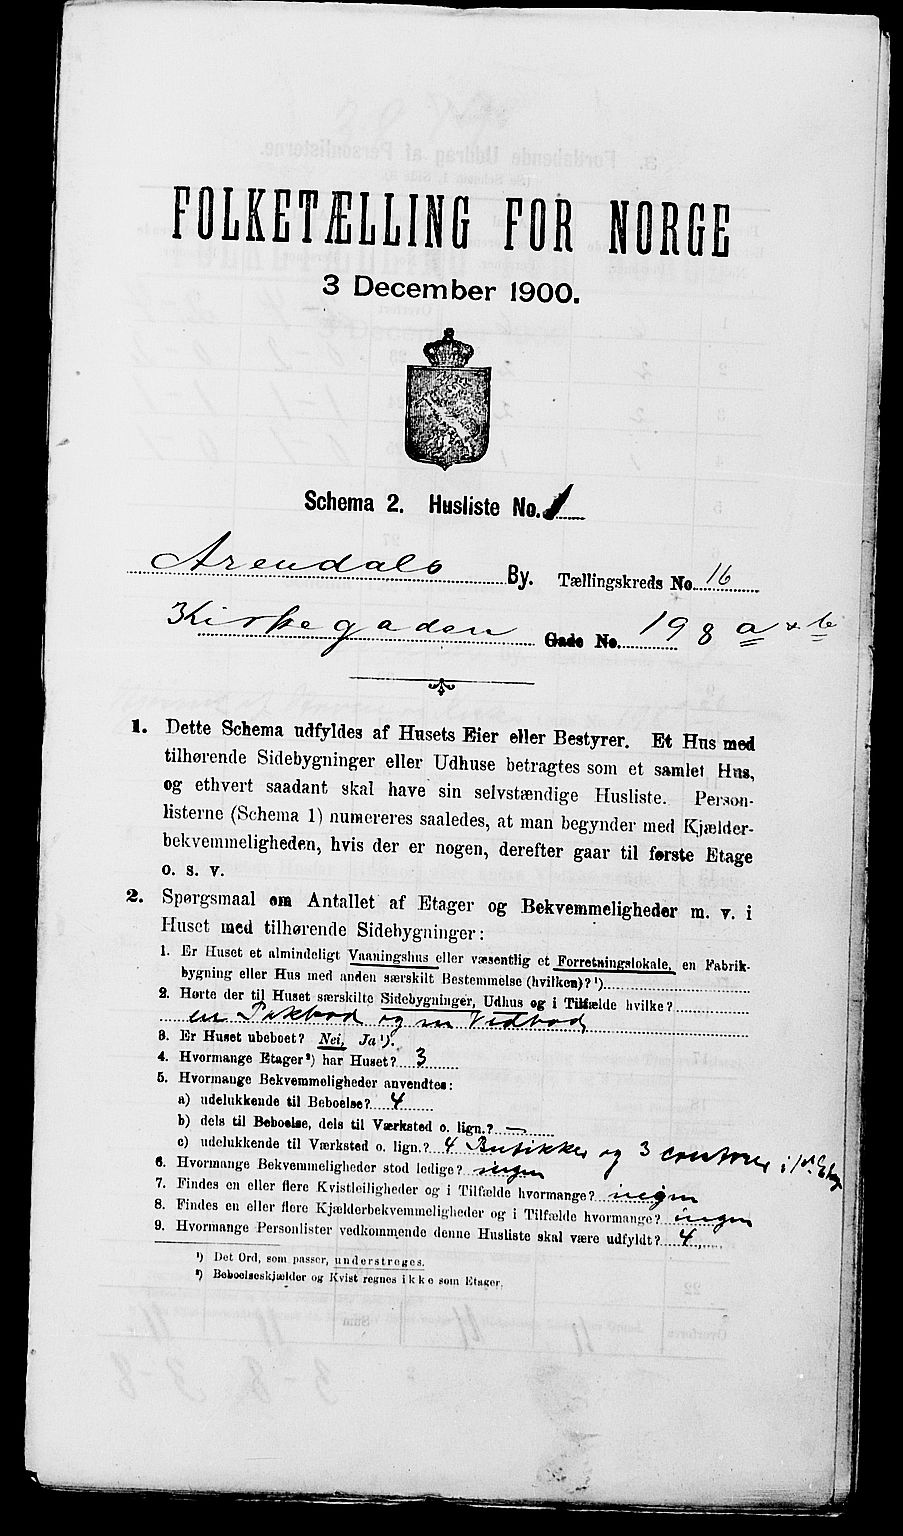 FOLKETÆLLING FOR NORGE
3 December 1900.
Schema 2. Husliste No. 1
Arendals By. Tællingskreds No. 16
Kirkegaden Gade No. 198 a & b
1. Dette Schema udfyldes af Husets Eier eller Bestyrer. Et Hus med
tilhørende Sidebygninger eller Udhuse betragtes som et samlet Hus,
og ethvert saadant skal have sin selvstændige Husliste. Person-
listerne (Schema 1) numereres saaledes, at man begynder med Kjælder-
bekvemmeligheden, hvis der er nogen, derefter gaar til første Etage
o. s. v.
2. Spørgsmaal om Antallet af Etager og Bekvemmeligheder m. v. i
Huset med tilhørende Sidebygninger:
1. Er Huset et almindeligt Vaaningshus eller væsentlig et Forretningslokale, en Fabrik-
bygning eller Hus med anden særskilt Bestemmelse (hvilken)? ¹)
2. Hørte der til Huset særskilte Sidebygninger, Udhus og i Tilfælde hvilke?
en Pakbod og en Vedbod
3. Er Huset ubeboet? Nei, Ja ¹).
4. Hvormange Etager ²) har Huset? 3
5. Hvormange Bekvemmeligheder anvendtes:
a) udelukkende til Beboelse? 4
b) dels til Beboelse, dels til Værksted o. lign.? —
c) udelukkende til Værksted o. lign.? 4 Butikker og 3 contorer i 1ste Etag
6. Hvormange Bekvemmeligheder stod ledige? ingen
7. Findes en eller flere Kvistleiligheder og i Tilfælde hvormange? ingen
8. Findes en eller flere Kjælderbekvemmeligheder og i Tilfælde hvormange? ingen
9. Hvormange Personlister vedkommende denne Husliste skal være udfyldt? 4
¹) Det Ord, som passer, understreges.
²) Beboelseskjælder og Kvist regnes ikke som Etager.